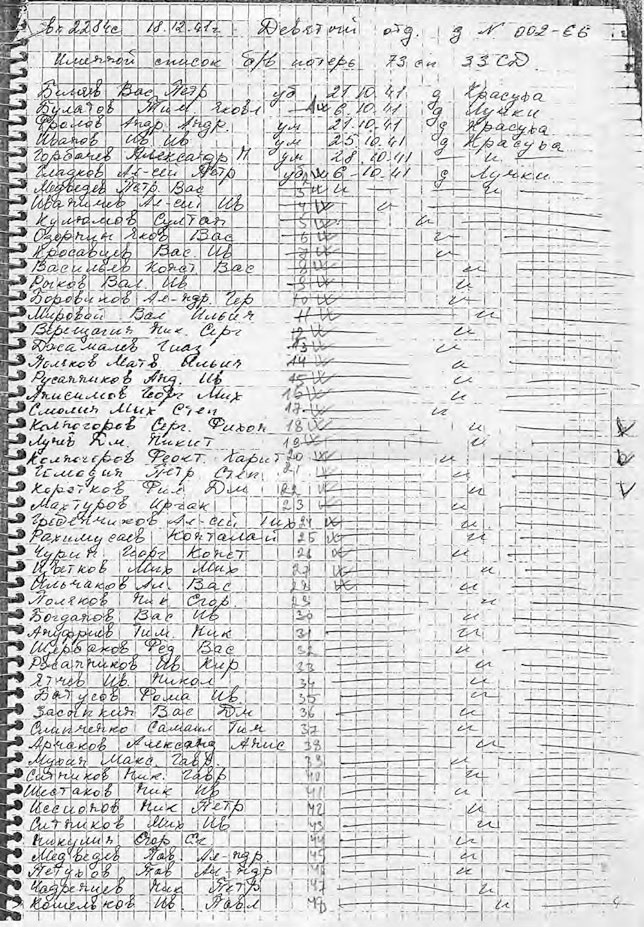 вх 2284с 18.12.41г. Девятый отд. д N 002-
Именной список б/в потерь 73 сп 33 СД.
Беляев Вас Петр уб 21.10.41 д Красуха
Булатов Тим Яковл 6.10.41 д Лучки
Фролов Андр. Андр. ум 21.10.41 д Красуха
Иванов Ив Ив ум 25.10.41 д Красуха
Горбачев Александр Н ум 28.10.41 и
Гладков Ал-сей Петр уб 6-10.41 д Лучки
Медведев Петр Вас 3 и и
Иваничев Ал-сей Ив 4 и
Кулюмов Султан 5 и
Озорнин Яков Вас 6 и
Кросавцев Вас Ив 7 и
Васильев Конст Вас 8 и
Рыков Вал Ив 9 и
Боровиков Ал-ндр. Гер 10 и
Мировой Вал Ильич 11 и
Верещагин Ник. Серг 12 и
Джамалев Гиаз 13 и
Поляков Матв Ильич 14 и
Русанников Анд. Ив 15 и
Анисимов Георг Мих 16 и
Смолин Мих Степ 17 и
Колногоров Серг. Фихон 18 и
Лунев Дм. Никит 19 и
Колногоров Феокт. Харит 20 и
Петр Степ 21 и
Коротков Фил Дм 22 и
Махтуров Иргак 23 и
Гребенчиков Ал-сей Тих 24 и
Рахимусаев Конталай 25 и
Чурин Георг Конст 26 и
Мих Мих 27 и
Ильчаков Ал Вас 28 и
Поляков Ник Егор 29 и
Богданов Вас Ив 30 и
Ануфриев Тим Ник 31 и
Щербаков Фед Вас 32 и
Русанников Ив Кир 33 и
Ятчев Ив Никол 34 и
Батусов Фома Ив 35 и
Засыпкин Вас Дм 36 и
Слипченко Самаил Тим 37 и
Арчаков Александ Анис 38 и
Мухин Макс Гавр. 39 и
Ситников Ник. Гавр 40 и
Шестаков Ник Ив 41 и
Иссионов Ник Петр 42 и
Ситников Мих Ив 43 и
Никулин Егор Ст 44 и
Медведев Пав. Ал-ндр. 45 и
Петухов Пав Ал-ндр 46 и
Чадренцев Ник Петр 47 и
Кошельков Ив. Павл 48 и